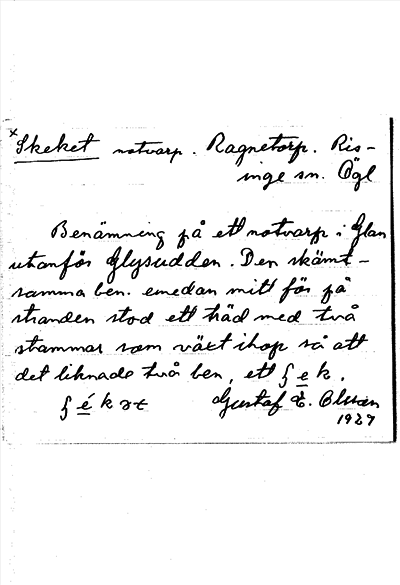 × Skeket notvarp. Ragnetorp. Ris-
inge sn. Ögl
Benämning på ett notvarp i Glan
utanför Glysudden. Den skämt-
samma ben. emedan mitt för på
stranden stod ett träd med två
stammar som växt ihop så att
det liknade två ben, ett ʃek.
ʃékət Gustaf E. Olsson
1927